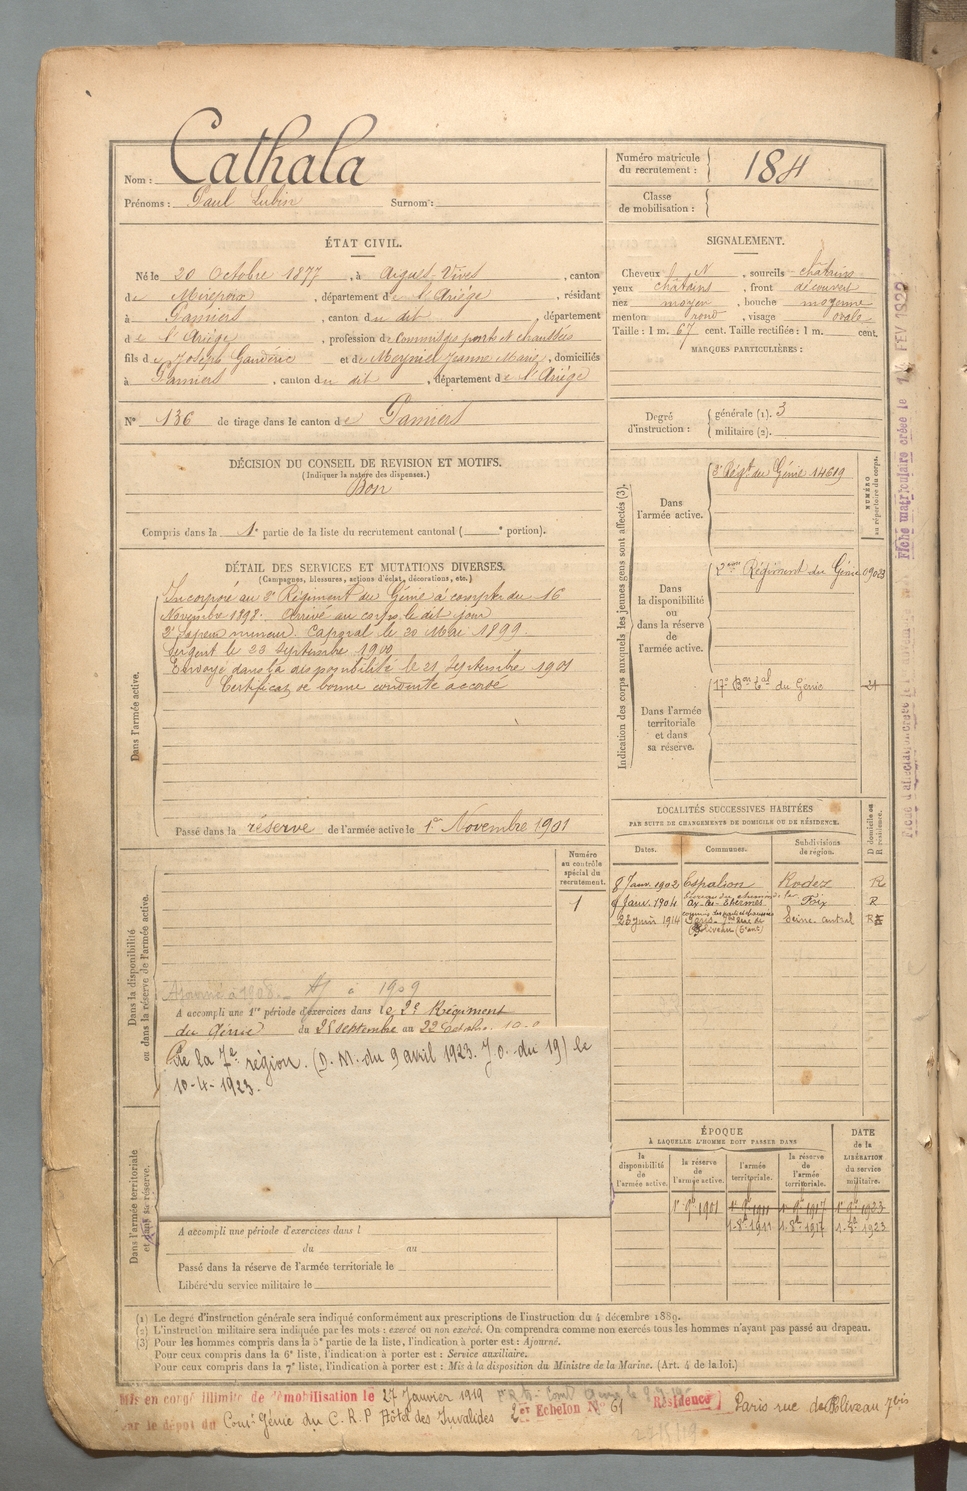 Nom : Cathala
Prénoms : Paul Lubin Surnom :
Numéro matricule du recrutement : 184
Classe de mobilisation :
ÉTAT CIVIL.
Né le 20 Octobre 1877, à Aigues-Vives, canton
de Mirepoix, département de l'Ariège, résidant
à Pamiers, canton du dit, département
de l'Ariège, profession de Commis des ponts et chaussées
fils de Joseph Gaudéric et de Meyniel Jeanne Marie, domiciliés
à Pamiers, canton du dit, département de l'Ariège
N° 136 de tirage dans le canton de Pamiers
SIGNALEMENT.
Cheveux ch N, sourcils châtains
yeux châtains, front découvert
nez moyen, bouche moyenne
menton rond, visage ovale
Taille : 1 m. 67 cent. Taille rectifiée : 1 m. cent.
MARQUES PARTICULIÈRES :
Degré d'instruction : générale (1). 3
militaire (2).
DÉCISION DU CONSEIL DE REVISION ET MOTIFS.
(Indiquer la nature des dispenses.)
Bon
Compris dans la 1e partie de la liste du recrutement cantonal ( e portion).
DÉTAIL DES SERVICES ET MUTATIONS DIVERSES.
(Campagnes, blessures, actions d'éclat, décorations, etc.)
Dans l'armée active.
Incorporé au 3e Régiment du Génie à compter du 16
Novembre 1898. Arrivé au corps le dit jour
2e Sapeur mineur. Caporal le 20 Mai 1899.
Sergent le 23 Septembre 1900
Envoyé dans la disponibilité le 21 Septembre 1901
Certificat de bonne conduite accordé
Passé dans la réserve de l'armée active le 1er Novembre 1901
Indication des corps auxquels les jeunes gens sont affectés (3).
NUMÉRO au répertoire du corps.
Dans l'armée active. 3e Régt du Génie 14619
Dans la disponibilité ou dans la réserve de l'armée active. 2eme Régiment du Génie 09023
Dans l'armée territoriale et dans sa réserve. 17e Bon Tal du Génie 21
LOCALITÉS SUCCESSIVES HABITÉES
PAR SUITE DE CHANGEMENTS DE DOMICILE OU DE RÉSIDENCE.
Dates. Communes. Subdivisions de région. D domicile ou R résidence.
8 Janv. 1902 Espalion Rodez R
9 Janv. 1904 Ax-les-Thermes Foix R
26 juin 1914 Paris 7bis rue de Poliveau (5e art) Seine central R
Dans la disponibilité ou dans la réserve de l'armée active.
Numéro au contrôle spécial du recrutement.
1
Ajourné à 1908. Aj à 1909
A accompli une 1re période d'exercices dans le 2e Régiment
du Génie du 25 septembre au 22 Octobre
de la 7e région. (D. M. du 9 avril 1923. J.O. du 19) le
10-4-1923.
Dans l'armée territoriale et dans sa réserve.
A accompli une période d'exercices dans l
du au
Passé dans la réserve de l'armée territoriale le
Libéré du service militaire le
ÉPOQUE
À LAQUELLE L'HOMME DOIT PASSER DANS
la disponibilité de l'armée active. la réserve de l'armée active. l'armée territoriale. la réserve de l'armée territoriale.
DATE de la LIBÉRATION du service militaire.
1r 9b 1901 1r 9b 1911 1r 9b 1917 1r 9b 1923
1-8b 1911 1-8b 1917 1-8b 1923
(1) Le degré d'instruction générale sera indiqué conformément aux prescriptions de l'instruction du 4 décembre 1889.
(2) L'instruction militaire sera indiquée par les mots : exercé ou non exercé. On comprendra comme non exercés tous les hommes n'ayant pas passé au drapeau.
(3) Pour les hommes compris dans la 5e partie de la liste, l'indication à porter est : Ajourné.
Pour ceux compris dans la 6e liste, l'indication à porter est : Service auxiliaire.
Pour ceux compris dans la 7e liste, l'indication à porter est : Mis à la disposition du Ministre de la Marine. (Art. 4 de la loi.)
Mis en congé illimité de démobilisation le 27 Janvier 1919
par le dépôt du Comt Génie du C.R.P Hôtel des Invalides 2er Echelon N° 61 Résidence Paris rue de Poliveau 7bis
Fiche matriculaire créée le FEV 1922